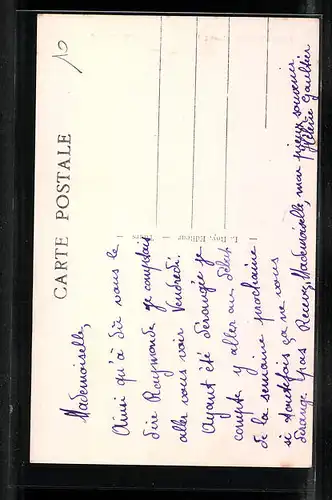 10
CARTE POSTALE
Roy, Editeur
Mademoiselle,
Ainsi qu'à dû vous le
dire Raymonde je comptais
aller vous voir Vendredi.
Ayant été dérangée je
compte y aller au début
de la semaine prochaine
si toutefois ça ne vous
dérange pas. Recevez, Mademoiselle, mon souvenir.
Hélène Gaultier